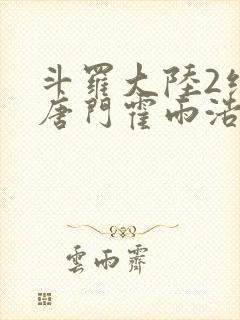 斗羅大陸2
唐門霍雨浩
雲雨齋